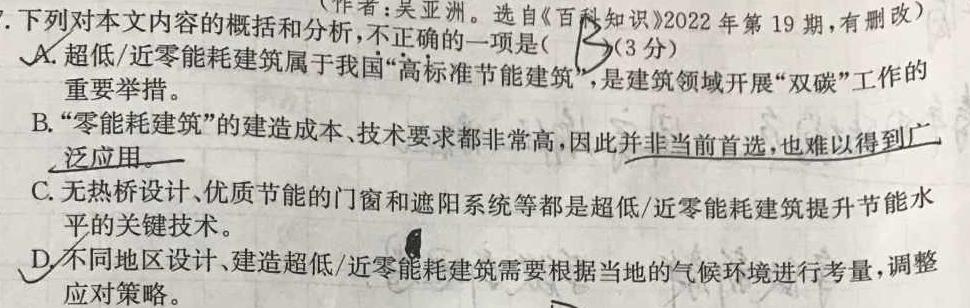 (作者:吴亚洲。选自《百科知识》2022年第19期,有删改)
7. 下列对本文内容的概括和分析,不正确的一项是( B )(3分)
A. 超低/近零能耗建筑属于我国“高标准节能建筑”,是建筑领域开展“双碳”工作的
重要举措。
B. “零能耗建筑”的建造成本、技术要求都非常高,因此并非当前首选,也难以得到广
泛应用。
C. 无热桥设计、优质节能的门窗和遮阳系统等都是超低/近零能耗建筑提升节能水
平的关键技术。
D. 不同地区设计、建造超低/近零能耗建筑需要根据当地的气候环境进行考量,调整
应对策略。